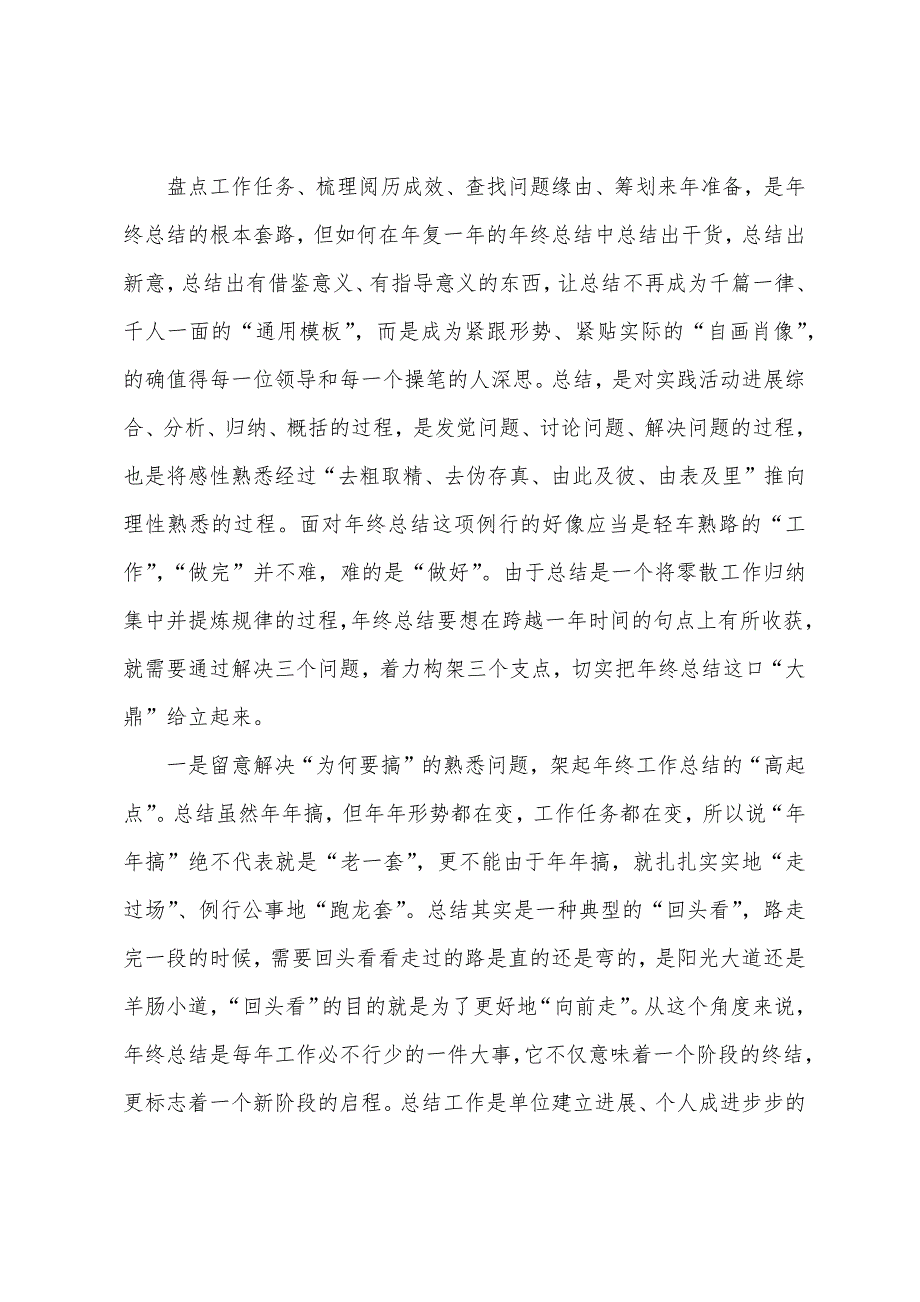 盘点工作任务、梳理阅历成效、查找问题缘由、筹划来年准备，是年
终总结的根本套路，但如何在年复一年的年终总结中总结出干货，总结出
新意，总结出有借鉴意义、有指导意义的东西，让总结不再成为千篇一律、
千人一面的“通用模板”，而是成为紧跟形势、紧贴实际的“自画肖像”，
的确值得每一位领导和每一个操笔的人深思。总结，是对实践活动进展综
合、分析、归纳、概括的过程，是发觉问题、讨论问题、解决问题的过程，
也是将感性熟悉经过“去粗取精、去伪存真、由此及彼、由表及里”推向
理性熟悉的过程。面对年终总结这项例行的好像应当是轻车熟路的“工
作”，“做完”并不难，难的是“做好”。由于总结是一个将零散工作归纳
集中并提炼规律的过程，年终总结要想在跨越一年时间的句点上有所收获，
就需要通过解决三个问题，着力构架三个支点，切实把年终总结这口“大
鼎”给立起来。
一是留意解决“为何要搞”的熟悉问题，架起年终工作总结的“高起
点”。总结虽然年年搞，但年年形势都在变，工作任务都在变，所以说“年
年搞”绝不代表就是“老一套”，更不能由于年年搞，就扎扎实实地“走
过场”、例行公事地“跑龙套”。总结其实是一种典型的“回头看”，路走
完一段的时候，需要回头看看走过的路是直的还是弯的，是阳光大道还是
羊肠小道，“回头看”的目的就是为了更好地“向前走”。从这个角度来说，
年终总结是每年工作必不行少的一件大事，它不仅意味着一个阶段的终结，
更标志着一个新阶段的启程。总结工作是单位建立进展、个人成进步步的